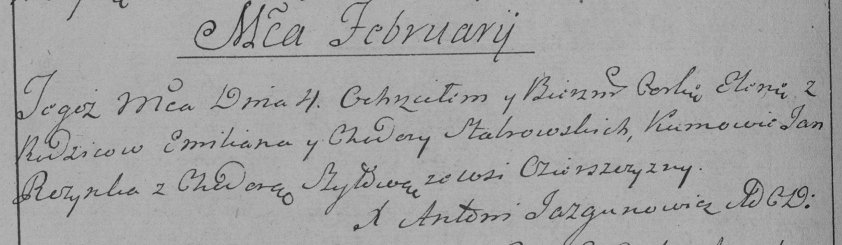 Mca Februarij
Tegoż Mca Dnia 4. Ochrzciłem y Bierzm Corkę Elenę z
Rodzicow Emiliana y Chodory Stabrowskich, Kumowie Jan
Rożynka z Chodorą Szyłową ze wsi Ozierszczyzny.
X Antoni Jazgunowicz